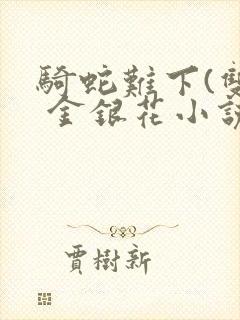 騎蛇難下(雙
金銀花小說
賈樹新